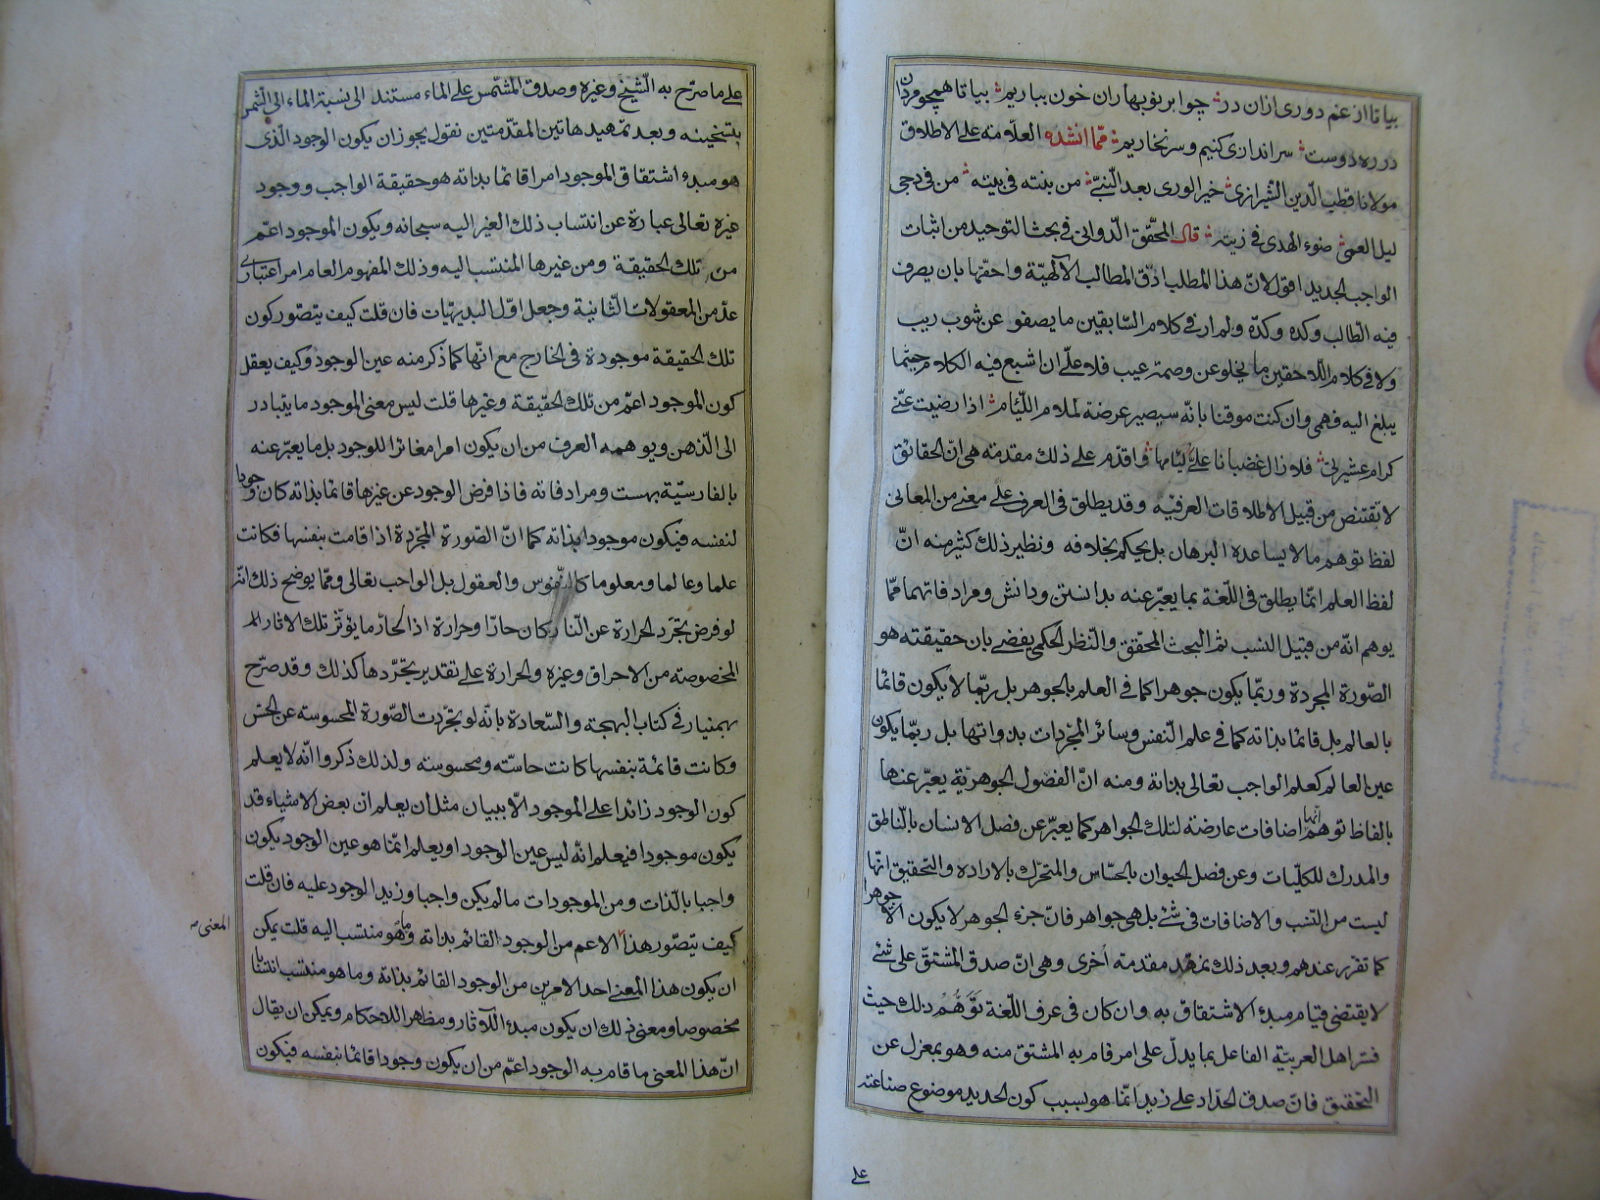 بیا تا از غم دوری ازان در چو ابر نوبهاران خون بباریم بیا تا همچو مردان
در ره دوست سر اندازی کنیم و سر نخاریم مما انشده العلامة على الاطلاق
مولانا قطب الدین الشیرازی خیر الوری بعد النبی من بنته فی بیته من فی دجی
لیل العمی ضوء الهدی فی زیته قال المحقق الدوانی فی بحث التوحید من اثبات
الواجب الجدید اقول لان هذا المطلب ادق المطالب الآلهیة و احقها بان یصرف
فیه الطالب وکده وکده ولم ار فی کلام السابقین ما یصفو عن شوب ریب
ولا فی کلام اللاحقین ما یخلو عن وصمة عیب فلا علی ان اشبع فیه الکلام حیثما
یبلغ الیه فهمی وان کنت موقنا بانه سیصیر عرضة لملام اللئام اذا رضیت عنی
کرام عشیرتی فلا زال غضبانا علی لئامها و اقدم علی ذلک مقدمة هی ان الحقائق
لا تقتنص من قبیل الاطلاقات العرفیه وقد یطلق فی العرف علی معنی من المعانی
لفظ توهم ما لا یساعده البرهان بل یحکم بخلافه ونظیر ذلک کثیر منه ان
لفظ العلم انما یطلق فی اللغة بما یعبر عنه بدانستن و دانش و مرادفاتهما مما
یوهم انه من قبیل النسب ثم البحث المحقق والنظر الحکمی یفضی بان حقیقته هو
الصورة المجردة وربما یکون جوهرا کما فی العلم بالجوهر بل ربما لا یکون قائما
بالعالم بل قائما بذاته کما فی علم النفس وسائر المجردات بذواتها بل ربما یکون
عین العالم کعلم الواجب تعالی بذاته ومنه ان الفصول الجوهریة یعبر عنها
بالفاظ توهم انها اضافات عارضة لتلک الجواهر کما یعبر عن فصل الانسان بالناطق
والمدرک للکلیات وعن فصل الحیوان بالحساس والمتحرک بالاراده والتحقیق انها
لیست من النسب والاضافات فی شئ بل هی جواهر فان جزء الجوهر لا یکون الا جوهرا
کما تقرر عندهم وبعد ذلک نمهد مقدمة أخری وهی ان صدق المشتق علی شئ
لا یقتضی قیام مبدء الاشتقاق به وان کان فی عرف اللغة توهم ذلک حیث
فسر اهل العربیة الفاعل بما یدل علی امر قام به المشتق منه وهو بمعزل عن
التحقیق فان صدق الحداد علی زید انما هو بسبب کون الحدید موضوع صناعته
علی
علی ما صرح به الشیخ وغیره وصدق المشمس علی الماء مستند الی نسبة الماء الی الشمس
بتسخینه وبعد تمهید هاتین المقدمتین نقول یجوز ان یکون الوجود الذی
هو مبدء اشتقاق الموجود امرا قائما بذاته هو حقیقة الواجب ووجود
غیره تعالی عبارة عن انتساب ذلک الغیر الیه سبحانه ویکون الموجود اعم
من تلک الحقیقة ومن غیرها المنتسب الیه وذلک المفهوم العام امر اعتباری
عد من المعقولات الثانیة وجعل اول البدیهیات فان قلت کیف یتصور کون
تلک الحقیقة موجودة فی الخارج مع انها کما ذکر منه عین الوجود وکیف یعقل
کون الموجود اعم من تلک الحقیقة وغیرها قلت لیس معنی الموجود ما یتبادر
الی الذهن ویوهمه العرف من ان یکون امرا مغائرا للوجود بل ما یعبر عنه
بالفارسیة بهست ومرادفاته فاذا فرض الوجود عن غیرها قائما بذاته کان وجودا
لنفسه فیکون موجودا بذاته کما ان الصورة المجردة اذا قامت بنفسها فکانت
علما وعالما ومعلوما کالنفوس والعقول بل الواجب تعالی ومما یوضح ذلک انه
لو فرض تجرد الحرارة عن النار کان حارا وحرارة اذ الحار ما یؤثر تلک الاثار
المخصوصة من الاحراق وغیره والحرارة علی تقدیر تجردها کذلک وقد صرح
بهمنیار فی کتاب البهجة والسعادة بانه لو تجردت الصورة المحسوسة عن الحس
وکانت قائمة بنفسها کانت حاسة ومحسوسة ولذلک ذکروا انه لا یعلم
کون الوجود زائدا علی الموجود الا ببیان مثل ان یعلم ان بعض الاشیاء قد
یکون موجودا فیعلم انه لیس عین الوجود او یعلم انما هو عین الوجود یکون
واجبا بالذات ومن الموجودات ما لم یکن واجبا وزید الوجود علیه فان قلت
کیف یتصور هذا الاعم من الوجود القائم بذاته وما هو منتسب الیه قلت یمکن
المعنی صـ
ان یکون هذا المعنی احد الامرین من الوجود القائم بذاته وما هو منتسب انتسابا
مخصوصا ومعنی ذلک ان یکون مبدء اللآثار ومظهر اللاحکام ویمکن ان یقال
ان هذا المعنی ما قام به الوجود اعم من ان یکون وجودا قائما بنفسه فیکون